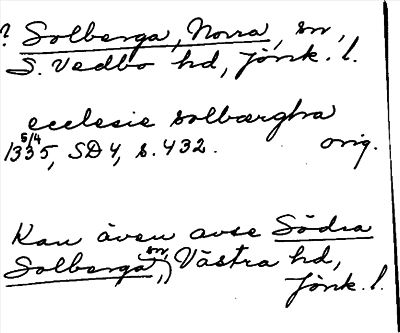 ? Solberga, Norra, sn,
S. Vedbo hd, Jönk. l.
ecclesie solbærgha
5/4
1335, SD 4, s. 432. orig.
Kan även avse Södra
Solberga, sn, Västra hd,
Jönk. l.